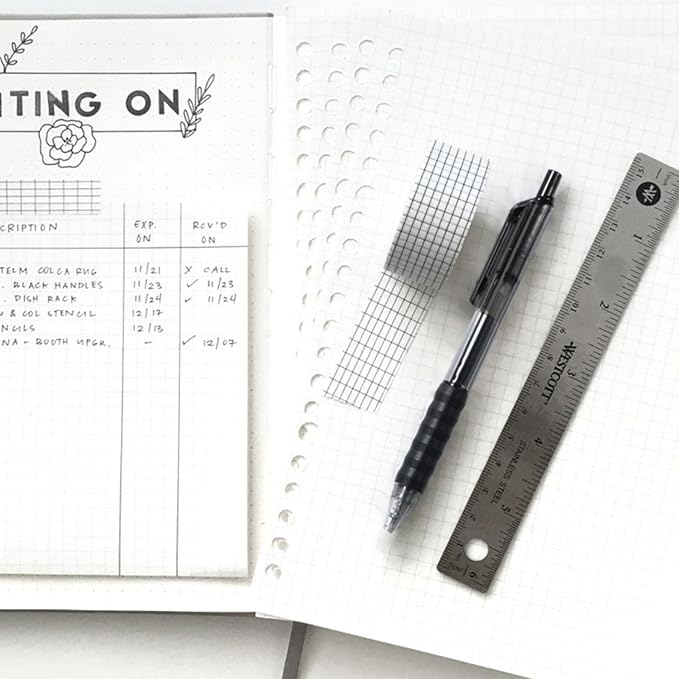 ITING ON
CRIPTION EXP. ON RCV'D ON
TELM COLCA RUG 11/21 X CALL
. BLACK HANDLES 11/23 ✓ 11/23
. DISH RACK 11/24 ✓ 11/24
& COL STENCIL 12/17
NCILS 12/13
NA - BOOTH UPGR. - ✓ 12/07
W
WESTCOTT
STAINLESS STEEL
15 14 13 12 11 10 9 8 7 6 5 4 3 2 1
1 2 3 4 5 6